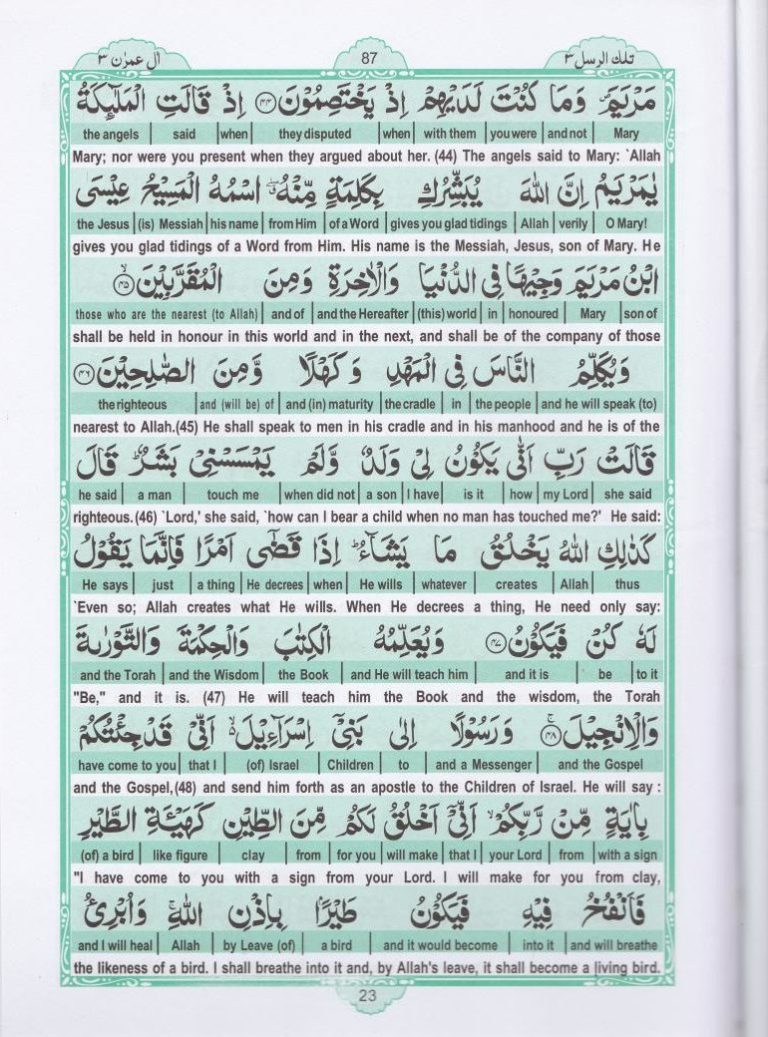 اٰل عمرٰن ٣ 87 تلك الرسل ٣
مَرْيَمَ وَمَا كُنْتَ لَدَيْهِمْ اِذْ يَخْتَصِمُوْنَ ﴿۴۴﴾ اِذْ قَالَتِ الْمَلٰٓئِكَةُ
the angels | said | when | they disputed | when | with them | you were | and not | Mary
Mary; nor were you present when they argued about her. (44) The angels said to Mary: `Allah
يٰمَرْيَمُ اِنَّ اللّٰهَ يُبَشِّرُكِ بِكَلِمَةٍ مِّنْهُ ۖ اسْمُهُ الْمَسِيْحُ عِيْسَى
the Jesus | (is) Messiah | his name | from Him | of a Word | gives you glad tidings | Allah | verily | O Mary!
gives you glad tidings of a Word from Him. His name is the Messiah, Jesus, son of Mary. He
ابْنُ مَرْيَمَ وَجِيْهًا فِى الدُّنْيَا وَالْاٰخِرَةِ وَمِنَ الْمُقَرَّبِيْنَ ﴿۴۵﴾
those who are the nearest (to Allah) | and of | and the Hereafter | (this) world | in | honoured | Mary | son of
shall be held in honour in this world and in the next, and shall be of the company of those
وَيُكَلِّمُ النَّاسَ فِى الْمَهْدِ وَكَهْلًا وَّمِنَ الصّٰلِحِيْنَ ﴿۴۶﴾
the righteous | and (will be) of | and (in) maturity | the cradle | in | the people | and he will speak (to)
nearest to Allah.(45) He shall speak to men in his cradle and in his manhood and he is of the
قَالَتْ رَبِّ اَنّٰى يَكُوْنُ لِىْ وَلَدٌ وَّلَمْ يَمْسَسْنِىْ بَشَرٌ ؕ قَالَ
he said | a man | touch me | when did not | a son | I have | is it | how | my Lord | she said
righteous.(46) `Lord,' she said, `how can I bear a child when no man has touched me?' He said:
كَذٰلِكِ اللّٰهُ يَخْلُقُ مَا يَشَآءُ ؕ اِذَا قَضٰٓى اَمْرًا فَاِنَّمَا يَقُوْلُ
He says | just | a thing | He decrees | when | He wills | whatever | creates | Allah | thus
`Even so; Allah creates what He wills. When He decrees a thing, He need only say:
لَهٗ كُنْ فَيَكُوْنُ ﴿۴۷﴾ وَيُعَلِّمُهُ الْكِتٰبَ وَالْحِكْمَةَ وَالتَّوْرٰىةَ
and the Torah | and the Wisdom | the Book | and He will teach him | and it is | be | to it
"Be," and it is. (47) He will teach him the Book and the wisdom, the Torah
وَالْاِنْجِيْلَ ﴿۴۸﴾ وَرَسُوْلًا اِلٰى بَنِىْٓ اِسْرَآءِيْلَ ۙ اَنِّىْ قَدْ جِئْتُكُمْ
have come to you | that I | (of) Israel | Children | to | and a Messenger | and the Gospel
and the Gospel,(48) and send him forth as an apostle to the Children of Israel. He will say :
بِاٰيَةٍ مِّنْ رَّبِّكُمْ ۙ اَنِّىْٓ اَخْلُقُ لَكُمْ مِّنَ الطِّيْنِ كَهَيْـَٔةِ الطَّيْرِ
(of) a bird | like figure | clay | from | for you | will make | that I | your Lord | from | with a sign
"I have come to you with a sign from your Lord. I will make for you from clay,
فَاَنْفُخُ فِيْهِ فَيَكُوْنُ طَيْرًۢا بِاِذْنِ اللّٰهِ ۚ وَاُبْرِئُ
and I will heal | Allah | by Leave (of) | a bird | and it would become | into it | and will breathe
the likeness of a bird. I shall breathe into it and, by Allah's leave, it shall become a living bird.
23